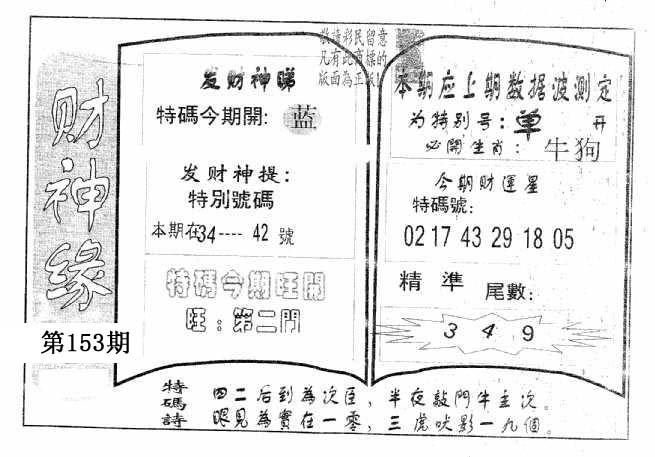 财神緣
第153期
敬請彩民留意
凡有此商標的
版面為正版
发财神睇
特碼今期開: 蓝
发财神提:
特別號碼
本期在34---- 42 號
特碼今期旺開
旺:第二門
本期应上期数据波测定
为特别号:单 开
必開生肖: 牛狗
今期财運星
特碼號:
02 17 43 29 18 05
精 準 尾數:
3 4 9
特碼詩
四二后到為次臣,半夜敲門牛主次。
眼見為實在一零,三虎吠影一九個。